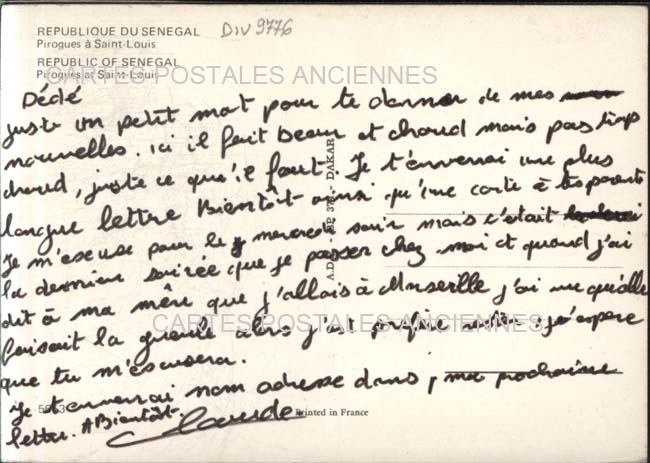 REPUBLIQUE DU SENEGAL
Pirogues à Saint-Louis
REPUBLIC OF SENEGAL
Pirogues at Saint-Louis
DIV 9776
CARTES POSTALES ANCIENNES
Dédé
juste un petit mot pour te donner de mes
nouvelles. ici il fait beau et chaud mais pas trop
chaud, juste ce qu'il faut. Je t'enverrai une plus
longue lettre Bientôt ainsi qu'une carte à tes parents
Je m'escuse pour le mercredi soir mais c'était
la dernière soirée que je passer chez moi et quand j'ai
dit à ma mère que j'allais à Marseille j'ai vu qu'elle
faisait la gueule alors j'ai préféré rester, j'espère
que tu m'escusera.
Je t'enverrai mon adresse dans ma prochaine
letter. A Bientôt.
Claude
CARTES POSTALES ANCIENNES
A.D. - BP. - DAKAR
Printed in France